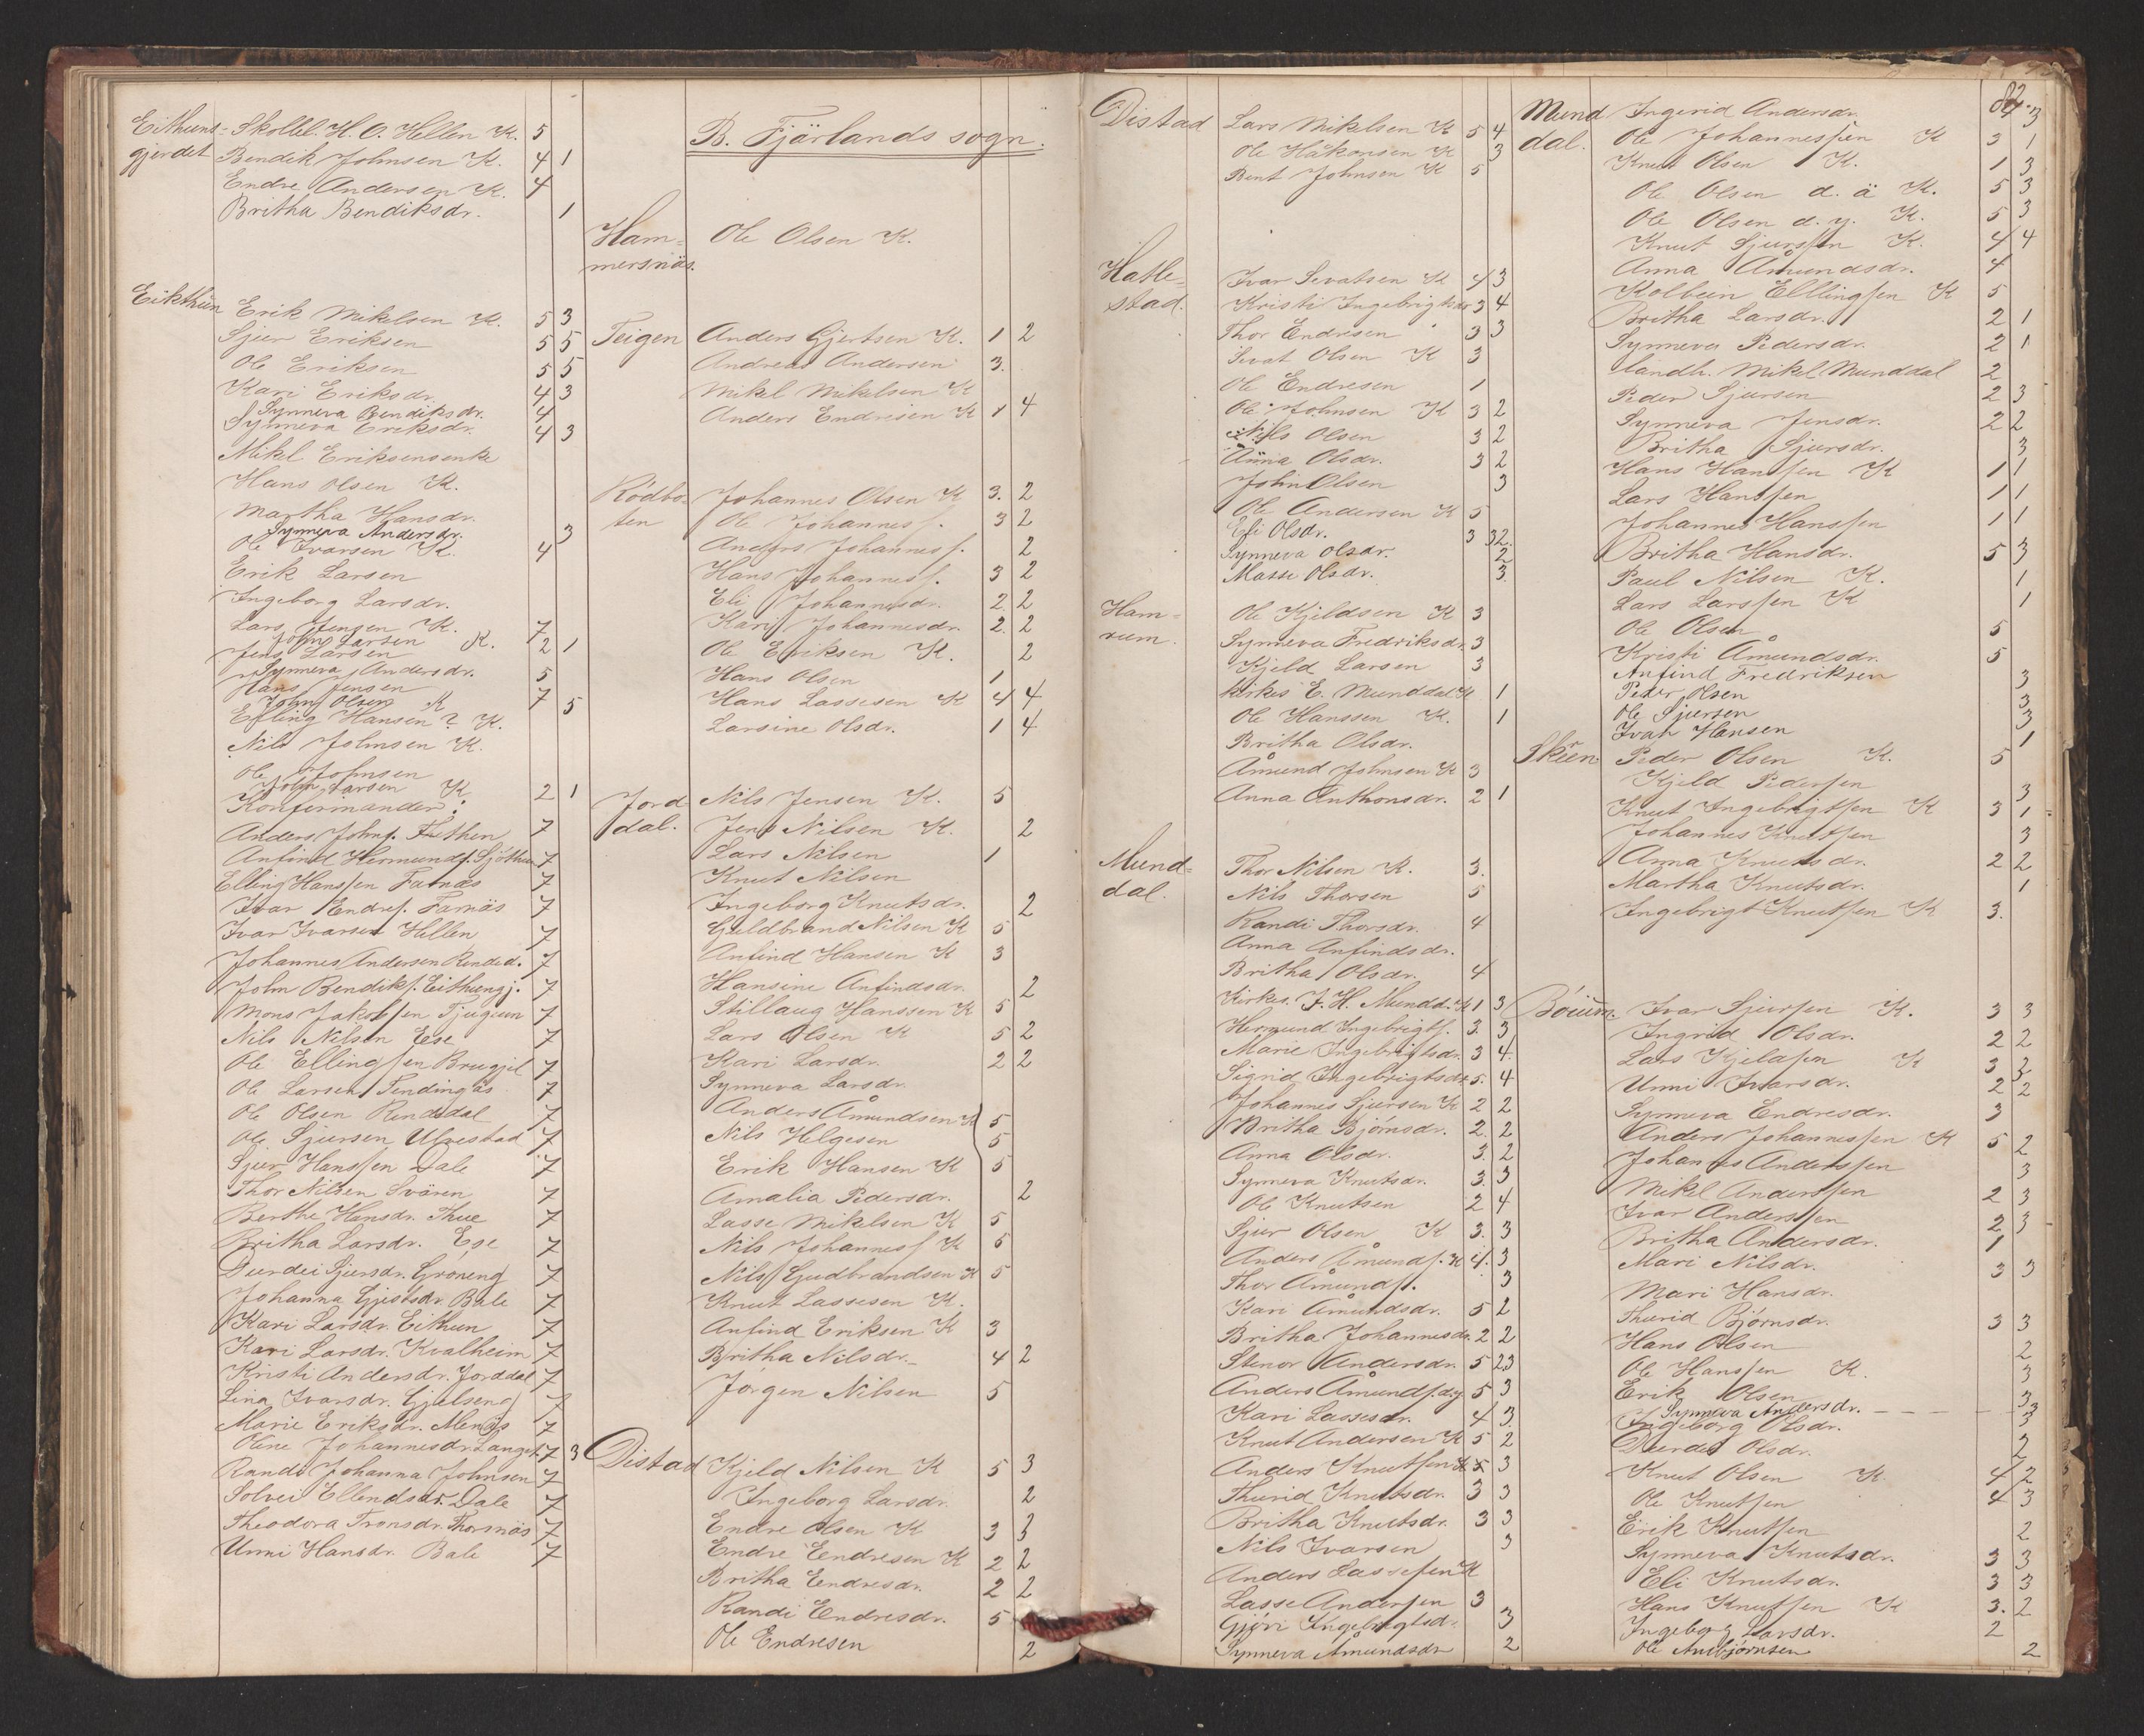 Eithuns- Skolel. H. O. Hellen K. 5
gjerdet Bendik Johnsen K. 4 1
Endre Andersen K. 4
Britha Bendiksdr. 1
Eikthun Erik Mikelsen K. 5 3
Sjur Eriksen 5 5
Ole Eriksen 5 5
Kari Eriksdr. 4 3
Synneva Bendiksdr. 4
Synneva Eriksdr. 4 3
Mikel Eriksensenke
Hans Olsen K.
Martha Hansdr.
Synneva Andersdr. 3
Ole Ivarsen K. 4
Erik Larsen
Ingeborg Larsdr.
Lars Jensen K. 7
John Larsen K. 2 1
Jens Larsen
Synneva Andersdr. 5
Hans Jensen 7
John Olsen K 5
Elling Hansen? K.
Nils Johnsen K.
Ole Johnsen
John Larsen K 2 1
Konfirmander:
Anders Johns. Fethen 7
Anfind Hermunds. Sjöthun 7
Elling Hanssen Farnäs 7
Ivar Endres. Farnäs 7
Ivar Ivarsen Hellen 7
Johannes Andersen Rended. 7
John Bendiks. Eithungj. 7
Mons Jakobsen Tjugum 7
Nils Nilsen Ese 7
Ole Ellingsen Brugjel 7
Ole Larsen Tendingäs 7
Ole Olsen Rendsdal 7
Ole Sjursen Ulvestad 7
Sjur Hanssen Dale 7
Thor Nilsen Svären 7
Berthe Hansdr. Thue 7
Britha Larsdr. Ese 7
Durdei Sjursdr. Gröneng 7
Johanna Gjertsdr. Bale 7
Kari Larsdr. Eithun 7
Kari Larsdr. Kvalheim 7
Kristi Andersdr. Jorddal 7
Lina Ivarsdr. Gjelseng 7
Marie Eriksdr. Menäs 7
Oline Johannesdr. Langet. 7 3
Randi Johanna Johnsen 7
Solvei Ellendsdr. Dale 7
Theodora Tronsdr. Thorsnäs 7
Unni Hansdr. Bale 7
B. Fjärlands sogn.
Ham- Ole Olsen K.
mersnäs.
Teigen Anders Gjertsen K. 1 2
Andreas Andersen 3.
Mikel Mikelsen K
Anders Endresen K 1 4
Rödbo- Johannes Olsen K 3. 2
ten Ole Johanness. 3 2
Anders Johanness. 2
Hans Johanness. 3 2
Eli Johannesdr. 2. 2
Kari Johannesdr. 2. 2
Ole Eriksen K. 2
Hans Olsen 1
Hans Lassesen K 4 4
Larsine Olsdr. 1 4
Jord Nils Jensen K. 5
dal. Jens Nilsen K. 2
Lars Nilsen 1
Knut Nilsen
Ingeborg Knutsdr. 2
Guldbrand Nilsen K 5
Anfind Hansen K 3
Hansine Anfindsdr. 2
Stillaug Hanssen K 5
Lars Olsen K 5 2
Kari Larsdr. 2 2
Synneva Larsdr.
Anders Åmundsen K 5
Nils Helgesen 5
Erik Hansen K 5
Amalia Pedersdr. 2
Lasse Mikelsen K 5
Nils Johanness K 5
Nils Gudbrandsen K 5
Knut Lassesen K.
Anfind Eriksen K 3
Britha Nilsdr. 4 2
Jörgen Nilsen 5
Distad Kjeld Nilsen K 5 3
Ingeborg Larsdr. 2
Endre Olsen K 3 3
Endre Endresen K 2 2
Britha Endresdr. 2 2
Randi Endresdr. 5
Ole Endresen 2
Distad Lars Mikelsen K 5 4
Ole Håkonsen K 3
Bent Johnsen K 5
Hatle- Ivar Sevatsen K 4 3
stad. Kristi Ingebrigtsdr 3 4
Thor Endresen 3 3
Sevat Olsen K 3
Ole Endresen 1
Ole Johnsen K 3 2
Nils Olsen 3 2
Anna Olsdr. 3 2
John Olsen 3
Ole Andersen K 5
Eli Olsdr. 3 32.
Synneva Olsdr. 2
Masse Olsdr. 3.
Ham- Ole Kjeldsen K 3
rum. Synneva Fredriksdr. 3
Kjeld Larsen 3
Kirkes. E. Munddal K 1
Ole Hanssen K. 1
Britha Olsdr.
Åmund Johnsen K 3
Anna Anthonsdr. 2 1
Mund- Thor Nilsen K. 3.
dal. Nils Thorsen 5
Randi Thorsdr. 4
Anna Anfindsdr.
Britha Olsdr. 4
Kirkes. J. H. Mundd. K 1 3
Hermund Ingebrigts. 3. 3
Marie Ingebrigtsdr. 3 4.
Sigrid Ingebrigtsdr. 5. 4
Johannes Sjursen K 2 2
Britha Björnsdr. 2. 2
Anna Olsdr. 3. 2
Synneva Knutsdr. 3. 3
Ole Knutsen 2 4
Sjur Olsen K 3. 3
Anders Åmunds. K 4. 3
Thor Åmunds. 3
Kari Åmundsdr. 5 2
Britha Johannesdr. 2 2
Stenor Andersdr. 5 23
Anders Åmunds. d.y 5 3
Kari Lassesdr. 4 3.
Knut Andersen K 5 2
Anders Knutsen K 5 3
Thurid Knutsdr. 3 3
Britha Knutsdr. 3 3
Nils Ivarsen 3
Anders Lassesen K
Lasse Andersen 3
Gjöri Ingebrigtsdr. 3
Synneva Åmundsdr 2
82.
Mund Ingerid Andersdr. 3
dal. Ole Johannessen K 3 1
Knut Olsen K. 1 3
Ole Olsen d. ä K. 5 3
Ole Olsen d. y. K. 5 3
Knut Sjurssen K. 4 4
Anna Åmundsdr. 4
Kolbein Ellingsen K 5
Britha Larsdr. 2 1
Synneva Pedersdr. 2 1
landh. Mikel Munddal 2
Peder Sjursen 2 3
Synneva Jensdr. 2 2
Britha Sjursdr. 3
Hans Hanssen K 1 1
Lars Hanssen 1 1
Johannes Hanssen 1 1
Britha Hansdr. 5 3
Paul Nilsen K. 1
Lars Larssen K 1
Ole Olsen 5
Kristi Åmundsdr. 5
Anfind Fredriksen 3
Peder Olsen 3
Ole Sjursen 3
Ivar Hansen 1
Skeen Peder Olsen K. 5
Kjeld Pedersen 3
Knut Ingebrigtsen K 3 1
Johannes Knutsen 3
Anna Knutsdr. 2 2
Martha Knutsdr. 1
Ingebrigt Knutsen K 3.
Böium. Ivar Sjursen K. 3 3
Ingrid Olsdr. 2 2
Lars Kjeldsen K 3 3
Unni Ivarsdr. 2 2
Synneva Endresdr. 3
Anders Johannessen K 5 2
Johannes Anderssen 3
Mikel Anderssen 2 3
Ivar Anderssen 2 3
Britha Andersdr. 1
Mari Nilsdr. 3 3
Mari Hansdr.
Thurid Björnsdr. 3 3
Hans Olsen 2
Ole Hanssen K. 3
Erik Olsen 3
Synneva Andersdr. 3
Ingeborg Olsdr. 3
Durdei Olsdr. 2
Knut Olsen K. 4 2
Ole Knutsen 4 3
Erik Knutsen 2
Synneva Knutsdr. 3 3
Eli Knutsdr. 3 3
Hans Knutsen K 3. 2
Ingeborg Larsdr. 2
Ole Aulbjørnsen 2